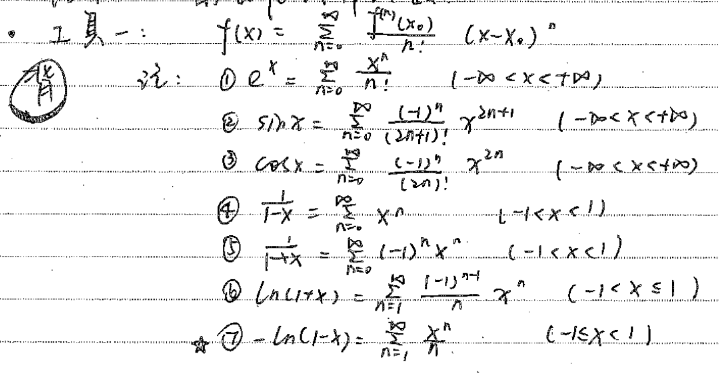 · 工具一: f(x) = \sum_{n=0}^{∞} \frac{f^{(n)}(x_0)}{n!} (x-x_0)^n
注: ① e^x = \sum_{n=0}^{∞} \frac{x^n}{n!} (-∞<x<+∞)
② sin x = \sum_{n=0}^{∞} \frac{(-1)^n}{(2n+1)!} x^{2n+1} (-∞<x<+∞)
③ cos x = \sum_{n=0}^{∞} \frac{(-1)^n}{(2n)!} x^{2n} (-∞<x<+∞)
④ \frac{1}{1-x} = \sum_{n=0}^{∞} x^n (-1<x<1)
⑤ \frac{1}{1+x} = \sum_{n=0}^{∞} (-1)^n x^n (-1<x<1)
⑥ ln(1+x) = \sum_{n=1}^{∞} \frac{(-1)^{n-1}}{n} x^n (-1<x≤1)
☆ ⑦ -ln(1-x) = \sum_{n=1}^{∞} \frac{x^n}{n} (-1≤x<1)